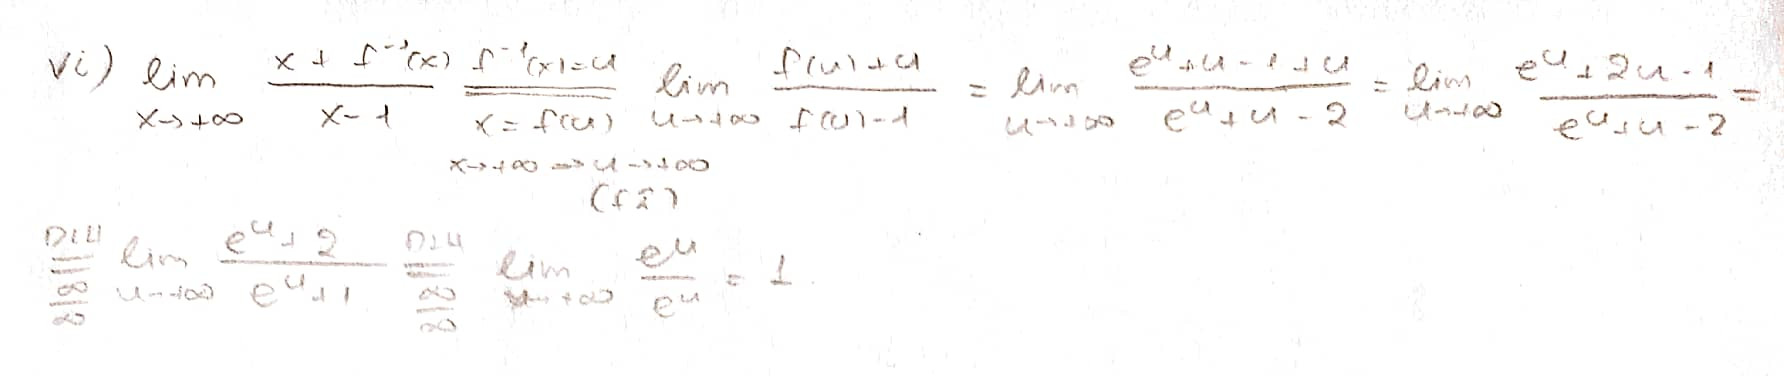 vi) lim_{x→+∞} \frac{x + f^{-1}(x)}{x-1} \overset{f^{-1}(x)=u}{\underset{x=f(u)}{=}} lim_{u→+∞} \frac{f(u)+u}{f(u)-1} = lim_{u→+∞} \frac{e^u+u-1+u}{e^u+u-2} = lim_{u→+∞} \frac{e^u+2u-1}{e^u+u-2} =
x→+∞ ⇒ u→+∞
\overset{DLH}{\underset{\frac{∞}{∞}}{=}} lim_{u→+∞} \frac{e^u+2}{e^u+1} \overset{DLH}{\underset{\frac{∞}{∞}}{=}} lim_{u→+∞} \frac{e^u}{e^u} = 1.